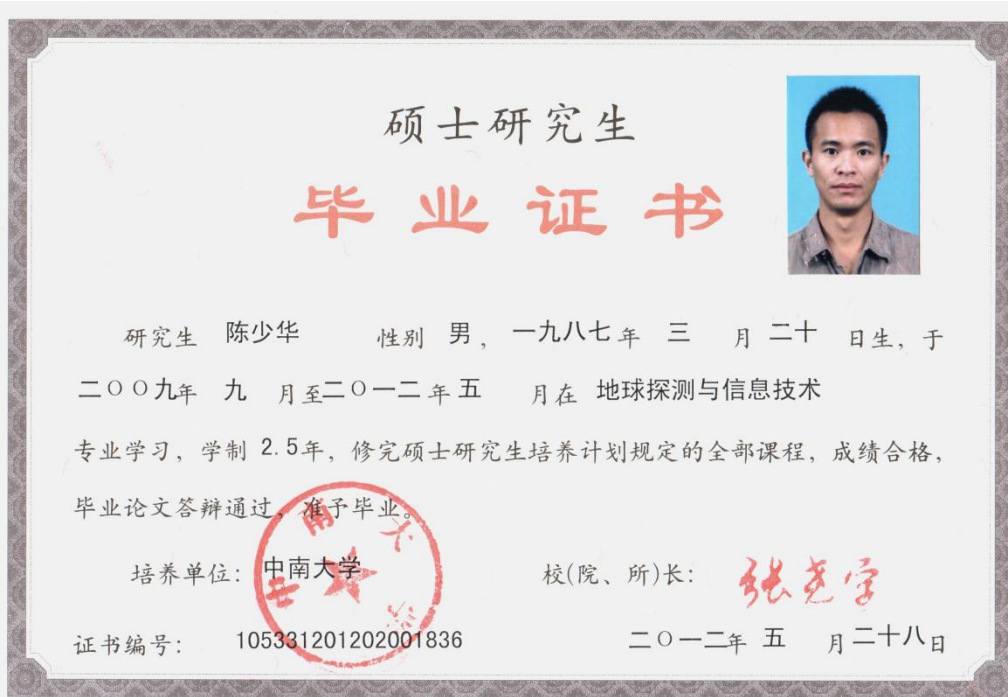 硕士研究生
毕业证书
研究生 陈少华 性别 男，一九八七年 三 月 二十 日生，于
二〇〇九年 九 月至二〇一二年 五 月在 地球探测与信息技术
专业学习，学制 2.5年，修完硕士研究生培养计划规定的全部课程，成绩合格，
毕业论文答辩通过，准予毕业。
中南大学
培养单位：中南大学 校(院、所)长：张尧学
证书编号：105331201202001836 二〇一二年 五 月二十八日